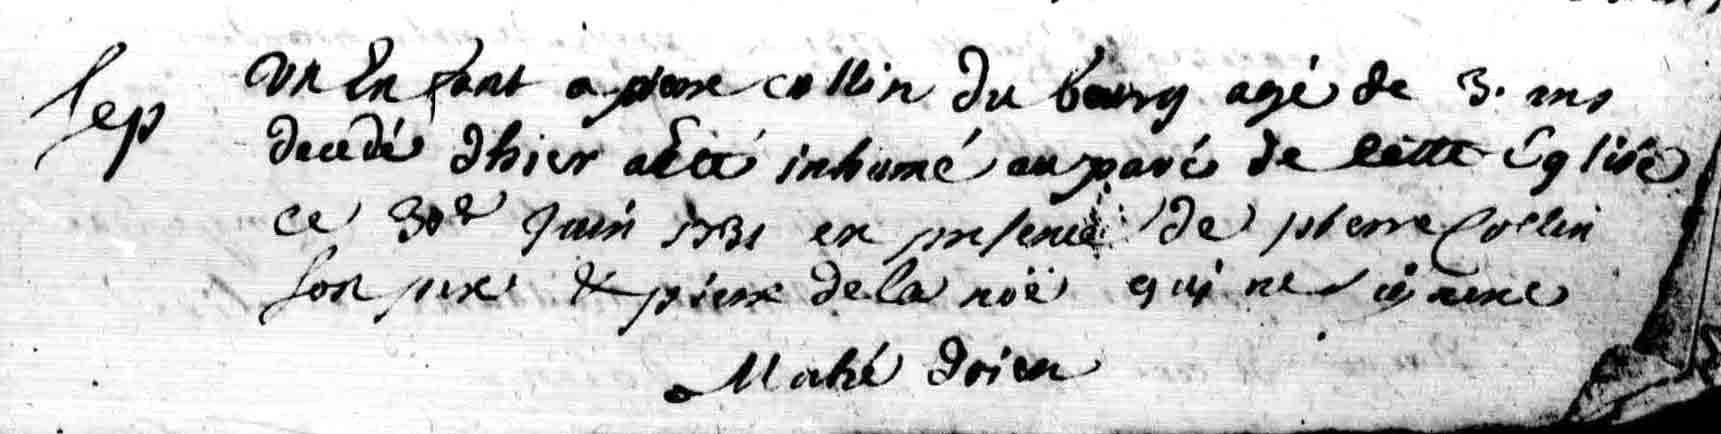 Sep
un Enfant a pierre collin du bourg agé de 3. ans
decedé dhier a Eté inhumé au pavé de cette Église
ce 30e Juin 1731 en presence de pierre Collin
son pere & pierre de la noë qui ne signent
Mahé doien